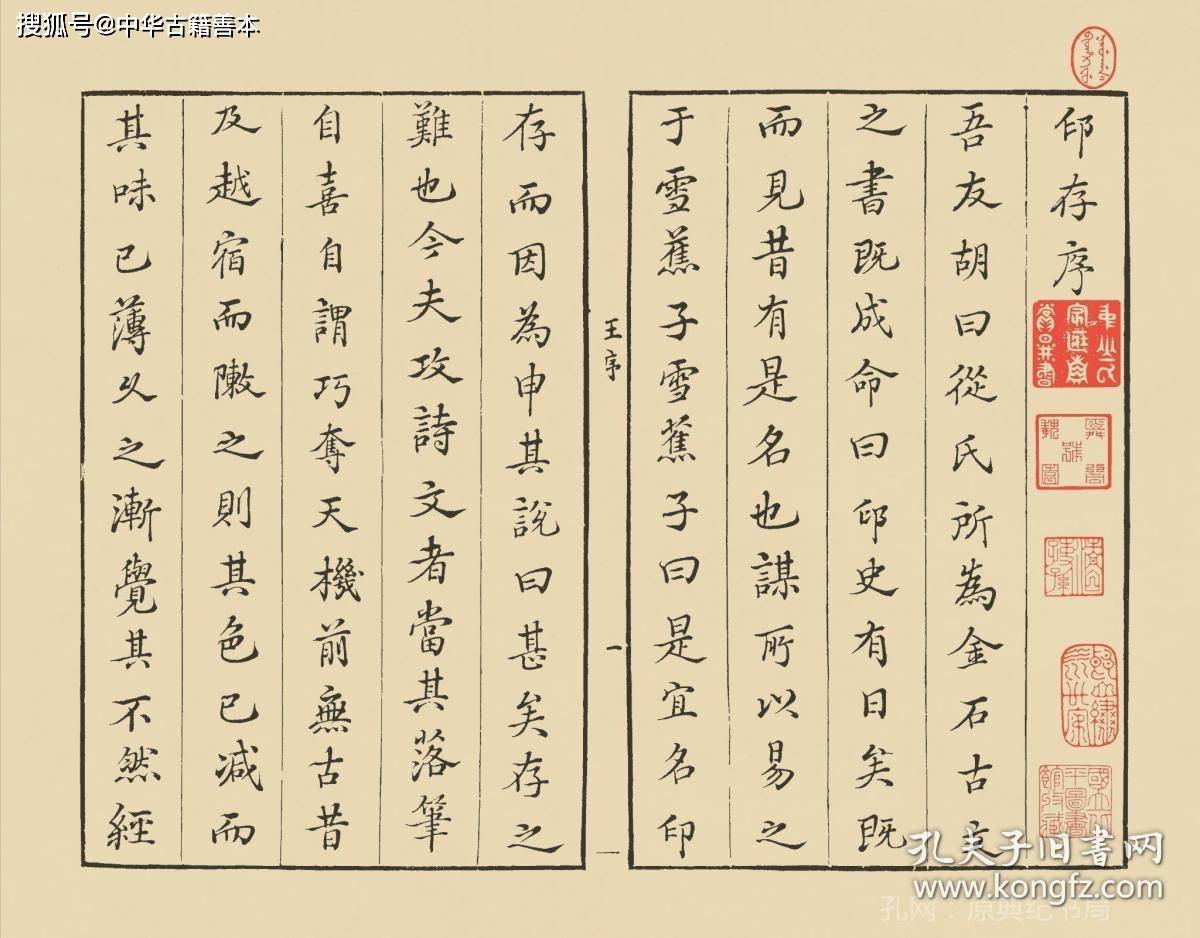 搜狐号@中华古籍善本
印存序
吾友胡曰從氏所為金石古文
之書既成命曰印史有日矣既
而見昔有是名也謀所以易之
于雪蕉子雪蕉子曰是宜名印
王序
一
存而因為申其說曰甚矣存之
難也今夫攻詩文者當其落筆
自喜自謂巧奪天機前無古昔
及越宿而瞰之則其色已減而
其味已薄久之漸覺其不然經
國立北
平圖書
館收藏
孔夫子旧书网
www.kongfz.com
孔网：原典纪书局